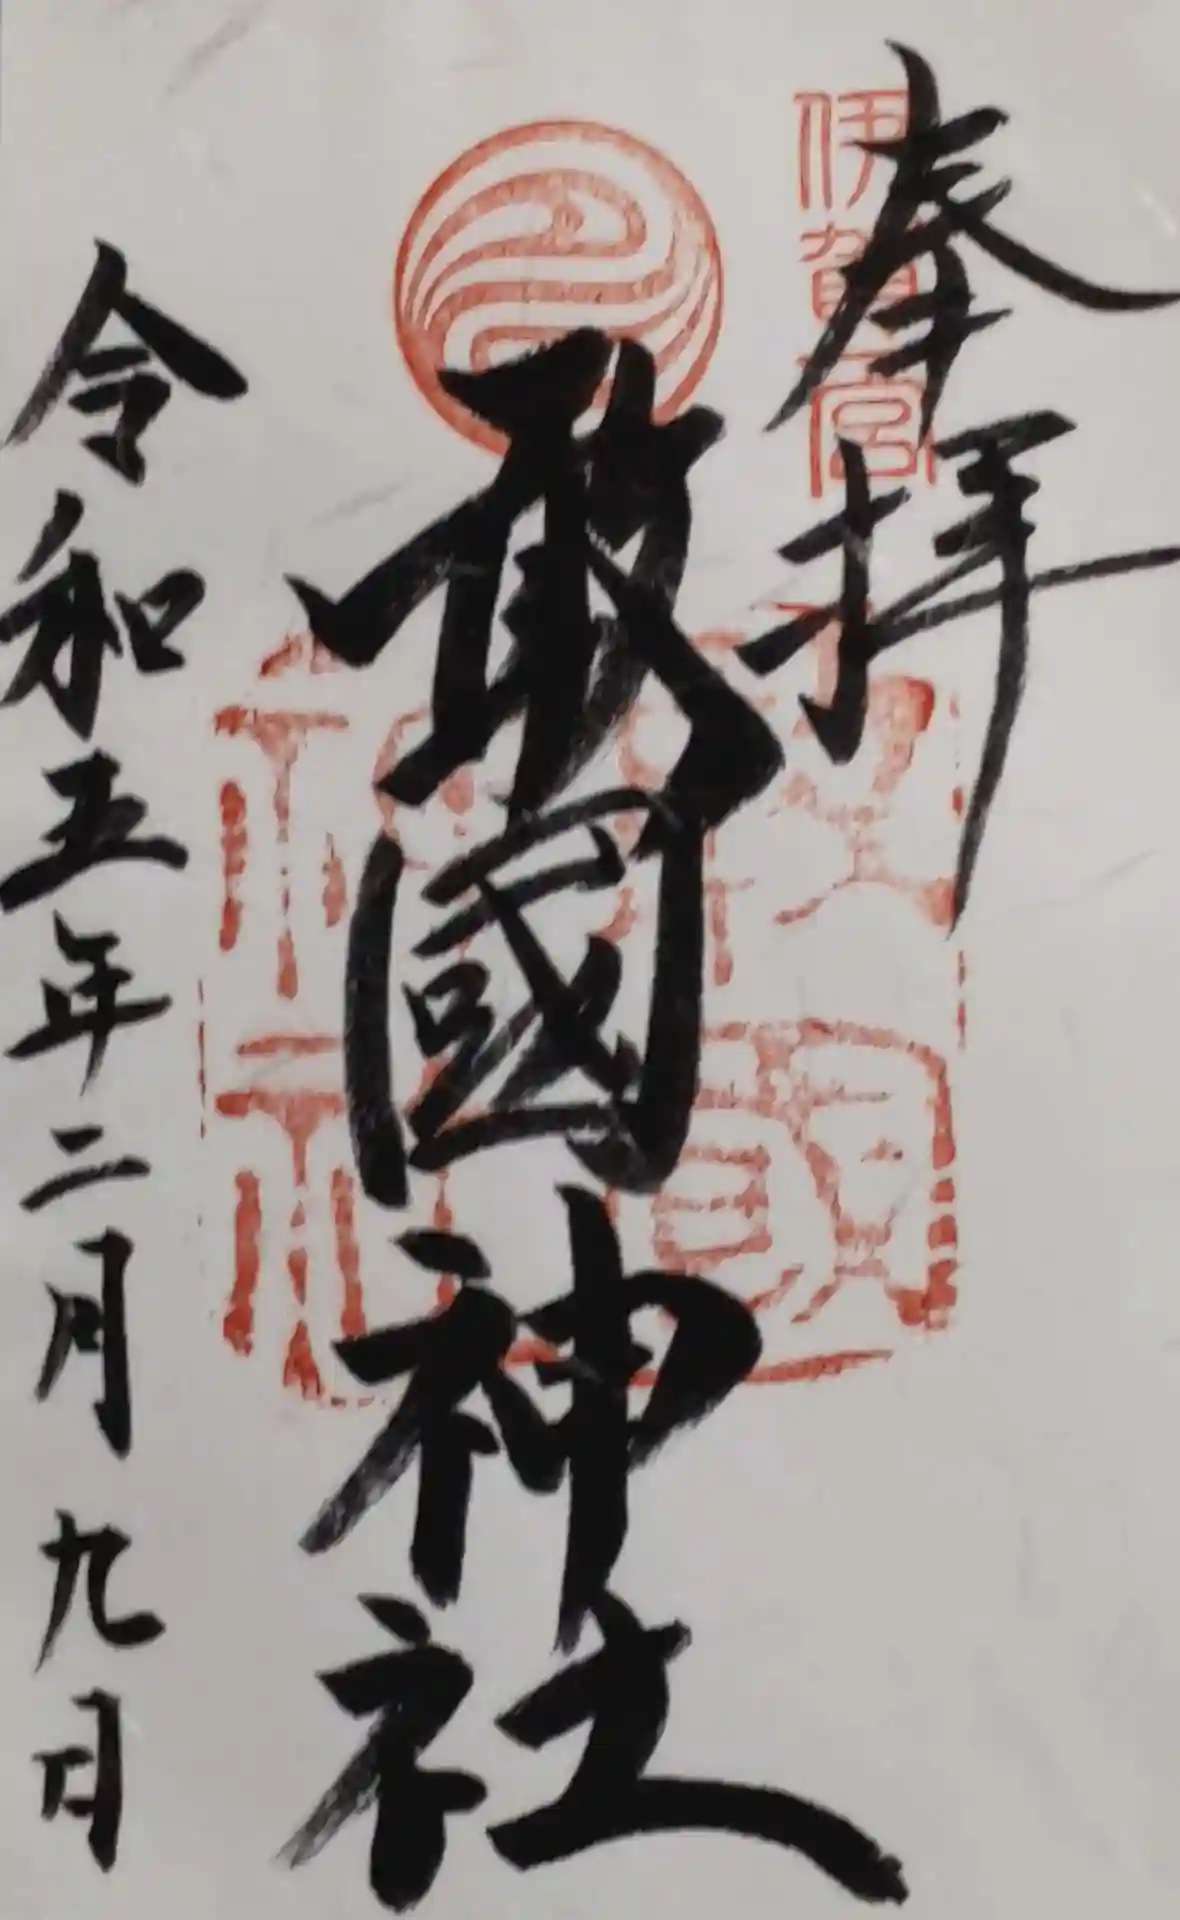 奉拝
伊賀一宮
敢國神社
敢國神社
令和五年二月九日